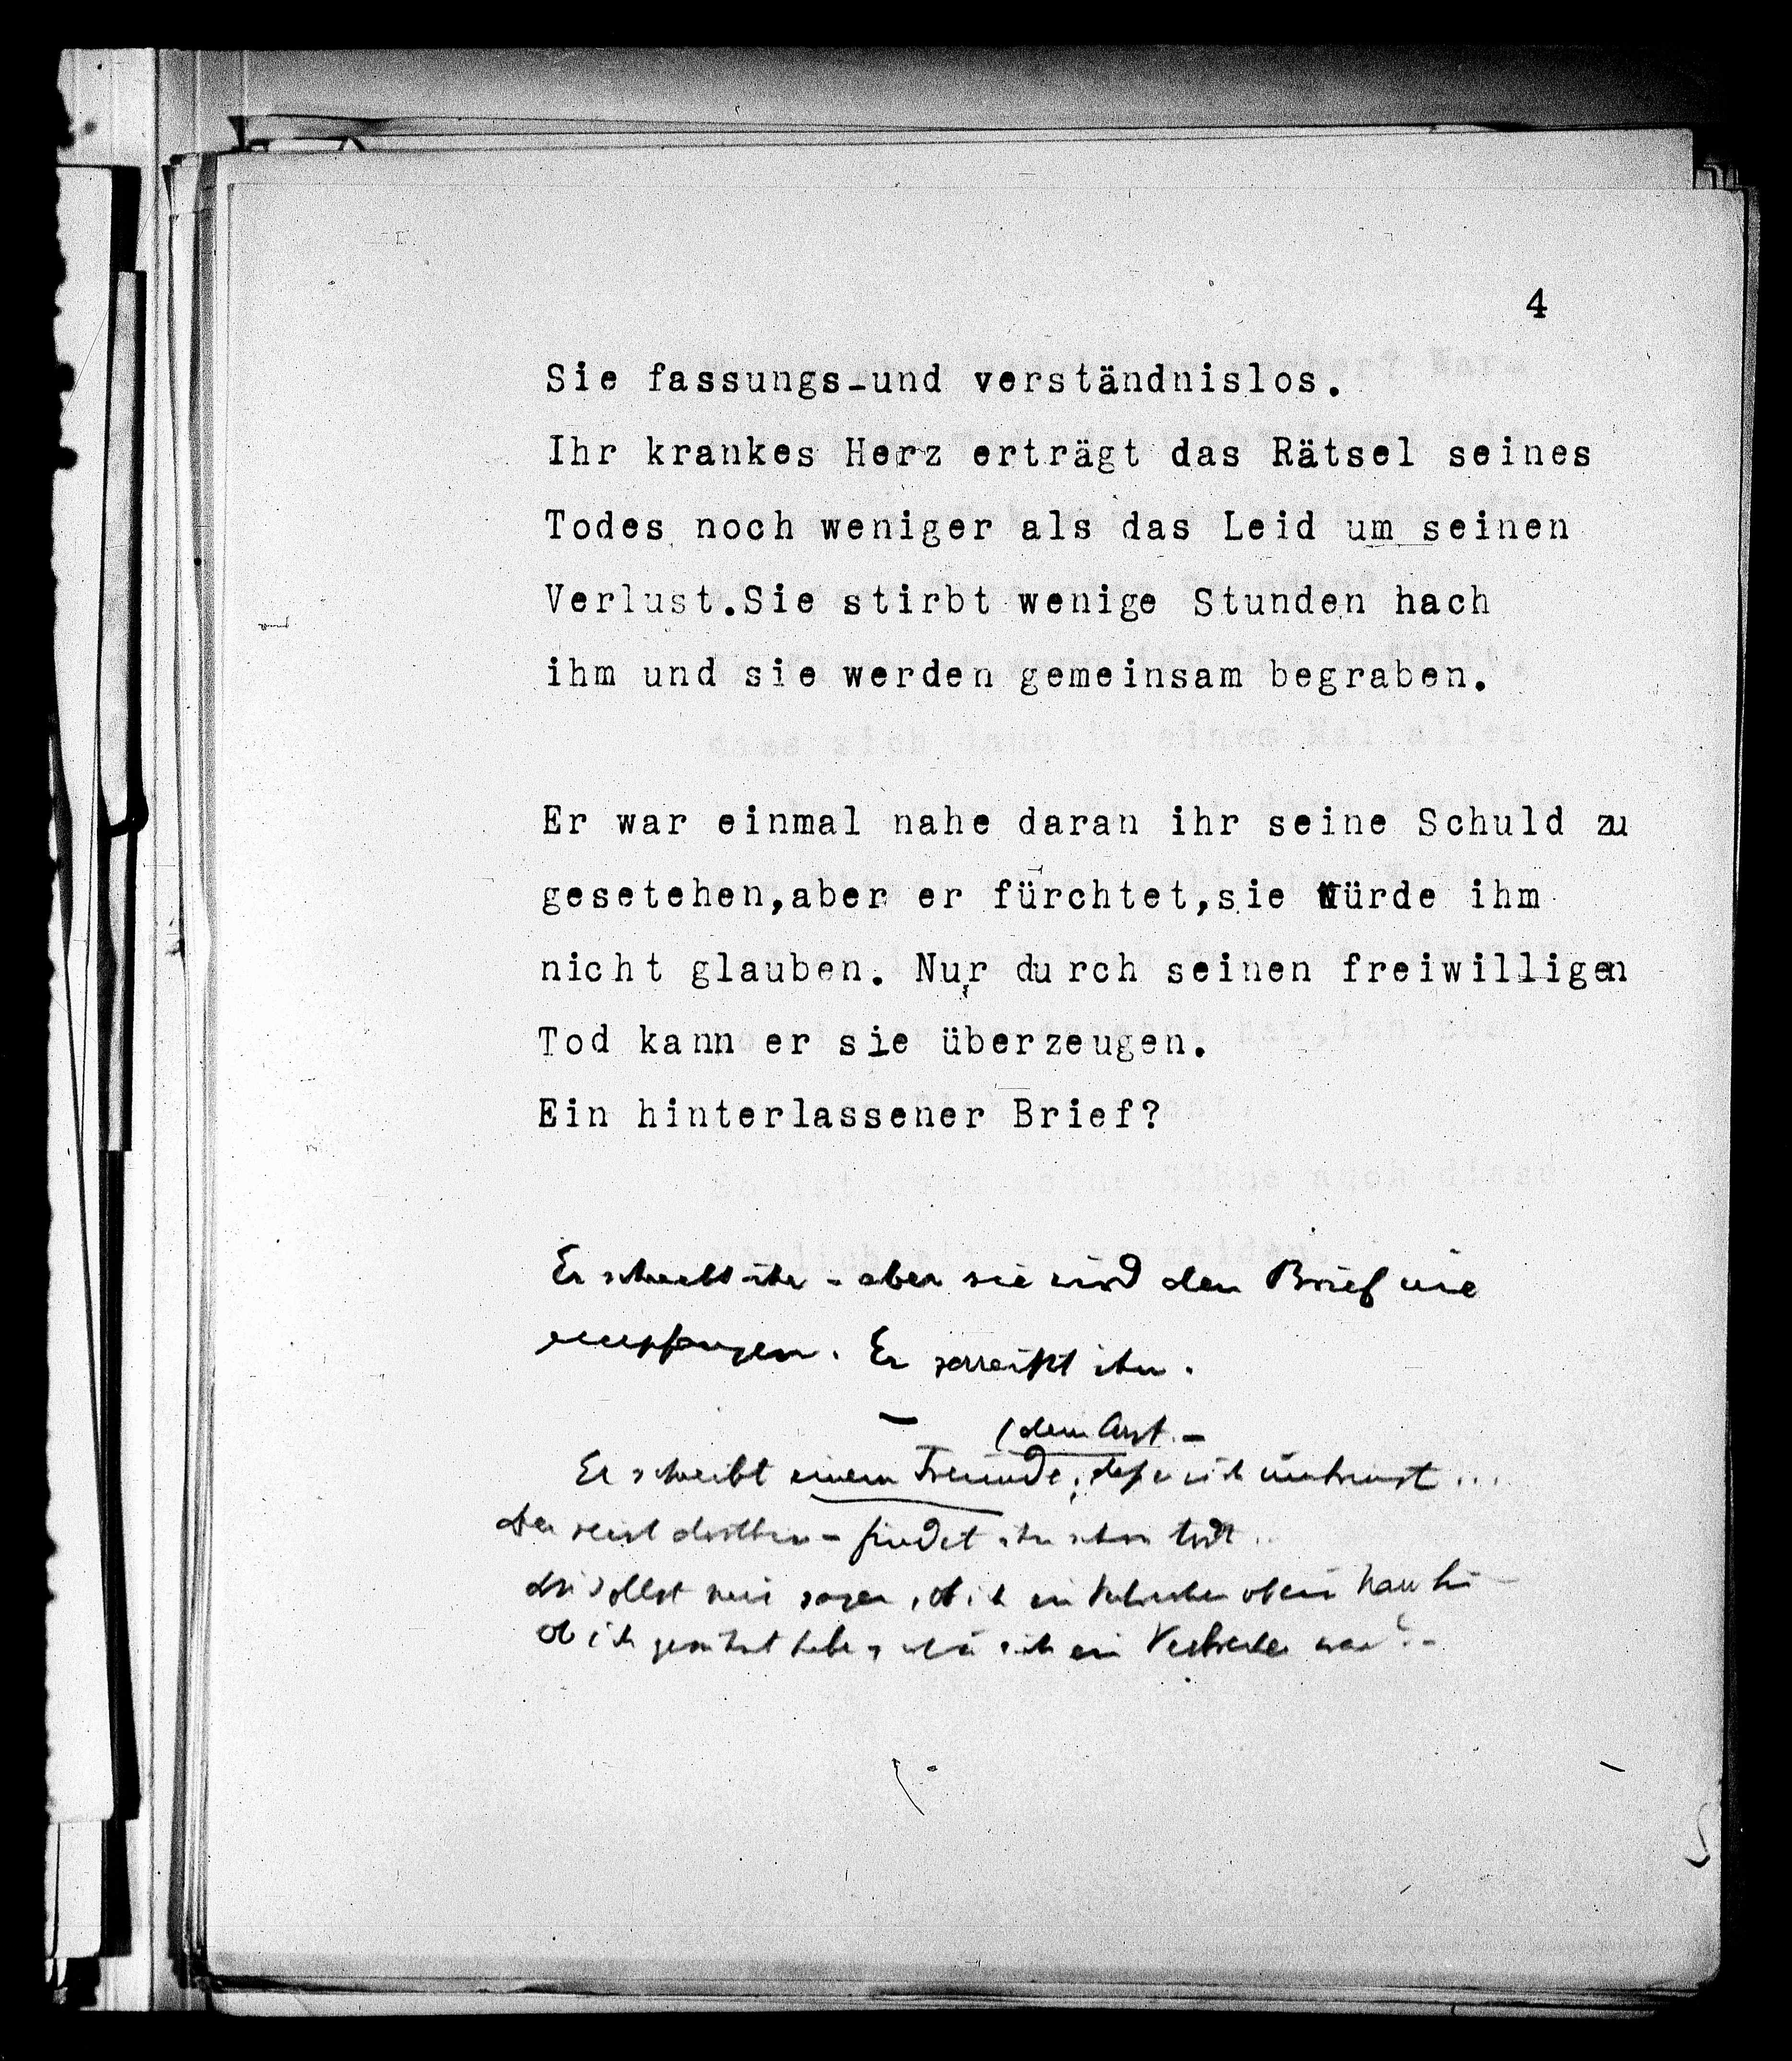 4
Sie fassungs-und verständnislos.
Ihr krankes Herz erträgt das Rätsel seines
Todes noch weniger als das Leid um seinen
Verlust.Sie stirbt wenige Stunden hach
ihm und sie werden gemeinsam begraben.
Er war einmal nahe daran ihr seine Schuld zu
gesetehen,aber er fürchtet,sie würde ihm
nicht glauben. Nur durch seinen freiwilligen
Tod kann er sie überzeugen.
Ein hinterlassener Brief?
Er schreibt ihr - aber sie wird den Brief nie
empfangen. Er zerreißt ihn.
(dem Arzt. -
Er schreibt einem Freunde, daß er sich umbringt ...
Der reist dorthin - findet ihn schon todt ..
du sollst mir sagen, ob ich ein Verbrecher oder ein
ob ich gesühnt habe, ich ein Verbrecher war? -